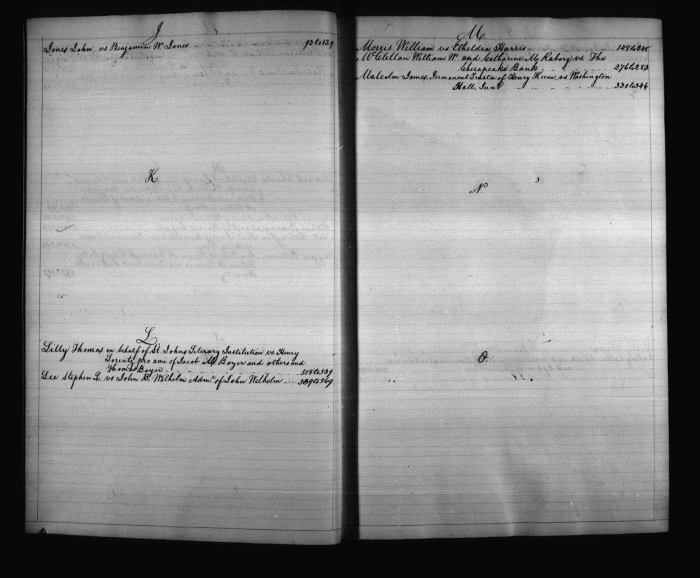 J
Jones John, vs Benjamin W. Jones 93 to 129
K
L
Lilly Thomas on behalf of St. Johns Literary Institution vs Henry
Lorentz pro ami of Jacob M. Boyer and others and
Thomas Boyer 318 to 339
Lee Stephen L. vs John B. Wilhelm Admr. of John Wilhelm
M
Morris William vs Etheldra Harris
McClellan William W. and Catharine M. Raborg vs The
Chesapeake Bank 276 to 283
Malcolm James, Permanent Trustee of Henry Keene, vs Washington
Hall, Junr 330 to 344
N
O.